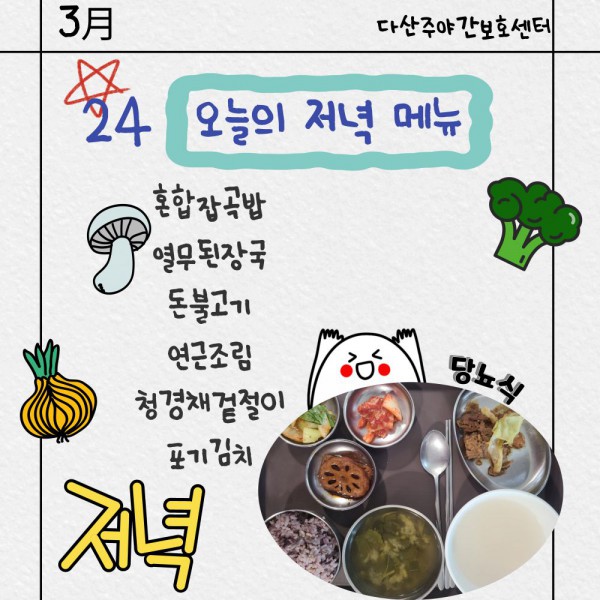 3月
다산주야간보호센터
24
오늘의 저녁 메뉴
혼합잡곡밥
열무된장국
돈불고기
연근조림
청경채겉절이
포기김치
당뇨식
저녁